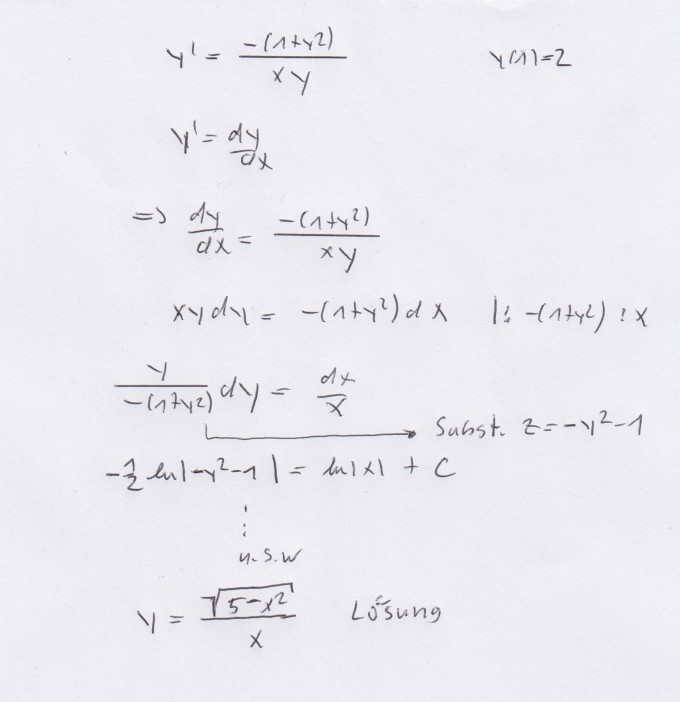 y' = -(1+y²)/xy    y(1)=2
y' = dy/dx
=> dy/dx = -(1+y²)/xy
xy dy = -(1+y²) dx   |: -(1+y²) : x
y/-(1+y²) dy = dx/x
Subst. z = -y²-1
-1/2 ln|-y²-1| = ln|x| + C
⋮
u.s.w
y = √(5-x²)/x    Lösung